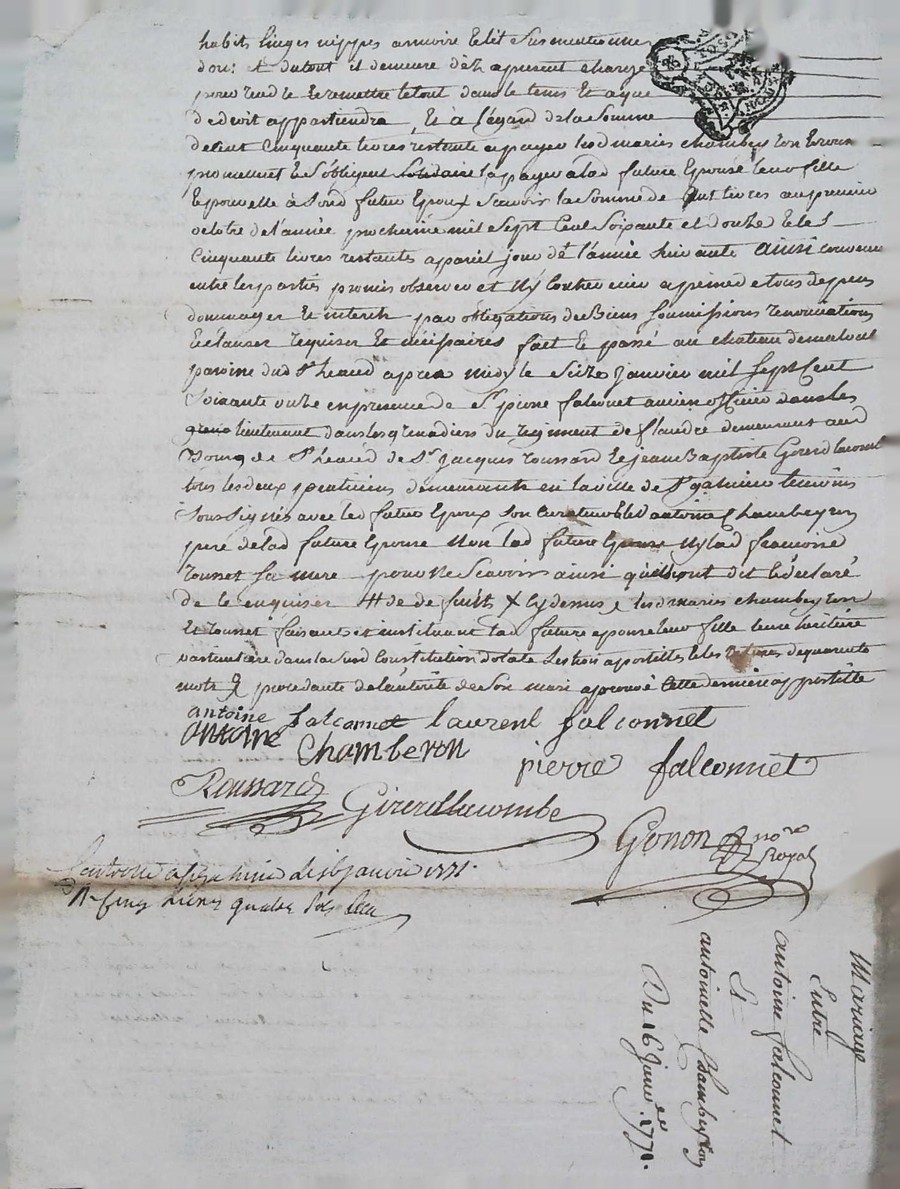 habits linges nippes armoire et lit sus mentionne
dont et du tout il demeure dèz a present chargé
pour rendre et remettre le tout dans le tems et a que
de droit appartiendra, et à l'egard de la somme
de cent cinquante livres restante a payer lesd maries chambeyron et rousset
promettent et s'obligent solidaire la payer a lad future Epouse leur fille
Epouvelle à sond futur Epoux scavoir la somme de cent livres au premier
octobre de l'année prochaine mil sept Cent soixante et douze et les
Cinquante livres restantes a pareil jour de l'année suivante ainsi convenu
entre les parties promis observer et n'y contrevenir a peine de tous depens
dommages et interets par obligations de Biens soumissions renonciations
et clauses requises et nécéssaires fait et passé au chateau de malval
paroisse dud St heand apres midy le seize janvier mil sept Cent
soixante onze en presence de Sr pierre falconet ancien officier dans les
lieutenant dans les grenadiers du regiment de flandre demeurant aud
Bourg de St heand de Sr Jacques roussard et jean Baptiste Girerd lacombe
tous les deux praticiens demeurants en la ville de St galmier temoins
soussignés avec led futur Epoux son curateur et led antoine Chambeyron
pere de lad future Epouse non lad future Epouse ny lad francoise
rousset sa mere pour ne scavoir ainsi qu'elles ont dit et déclaré
de ce enquises # de de fuits X cy dessus, lesd maries chambeyron
et rousset faisants et instituant lad future epouse leur fille leur heritiere
particuliere dans la susd Constitution dotale les trois apostilles et les ratures de quarante
mots & procedante de l'autorité de son mari aprouvé cette derniere appostille
antoine falconnet laurent falconnet
antoine Chamberon pierre falconnet
Roussard Girerdlacombe
Gonon nore Royal
Controllé a le 16 janvier 1771
R. cinq livres quatre sols
Mariage
Entre
antoine falconnet
Et
antoinette Chambeyron
Du 16 janvier 1771.